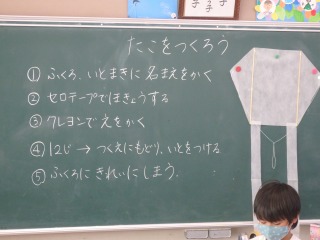 たこをつくろう
① ふくろ、いとまきに名まえをかく
② セロテープでほきょうする
③ クレヨンでえをかく
④ 12じ → つくえにもどり、いとをつける
⑤ ふくろにきれいにしまう。